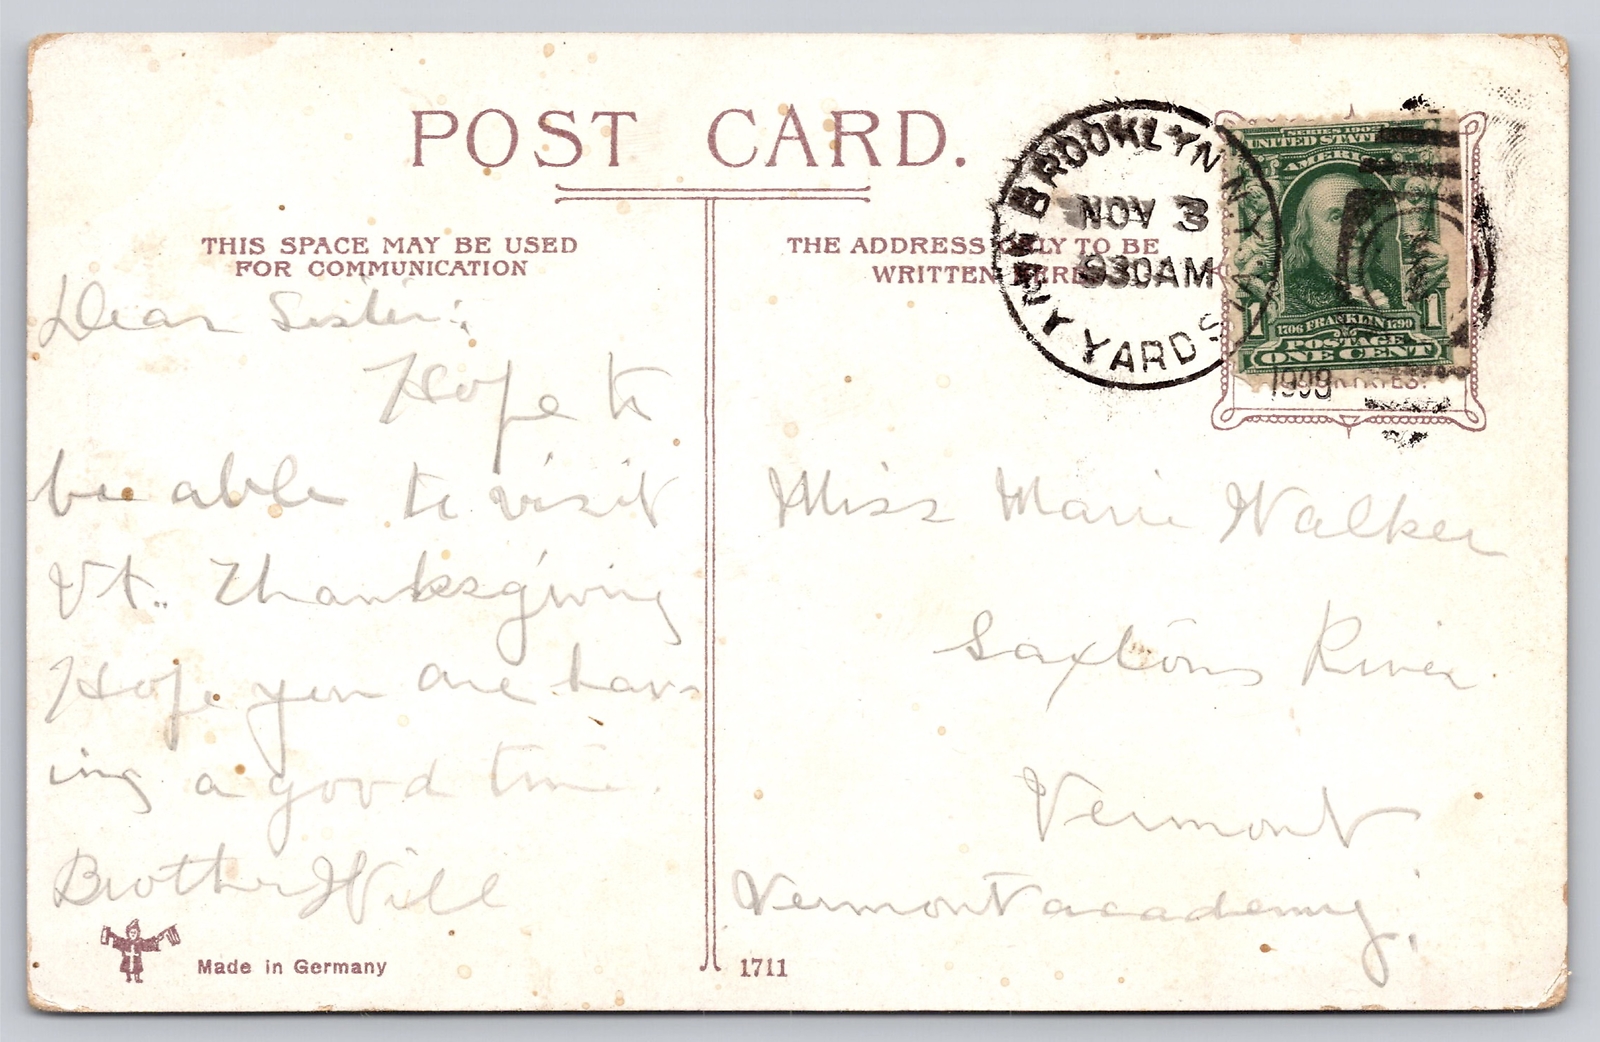 POST CARD.
THIS SPACE MAY BE USED
FOR COMMUNICATION
THE ADDRESS ONLY TO BE
WRITTEN HERE
BROOKLYN N.Y.
NOV 3
930AM
NY YARDS
1909
SERIES 1902
UNITED STATES
OF AMERICA
1706 FRANKLIN 1790
POSTAGE
1 1
ONE CENT
Dear Sister:
Hope to
be able to visit
Vt. Thanksgiving
Hope you are hav-
ing a good time.
Brother Will
Miss Marie Walker
Saxtons River
Vermont
Vermont academy.
Made in Germany
1711